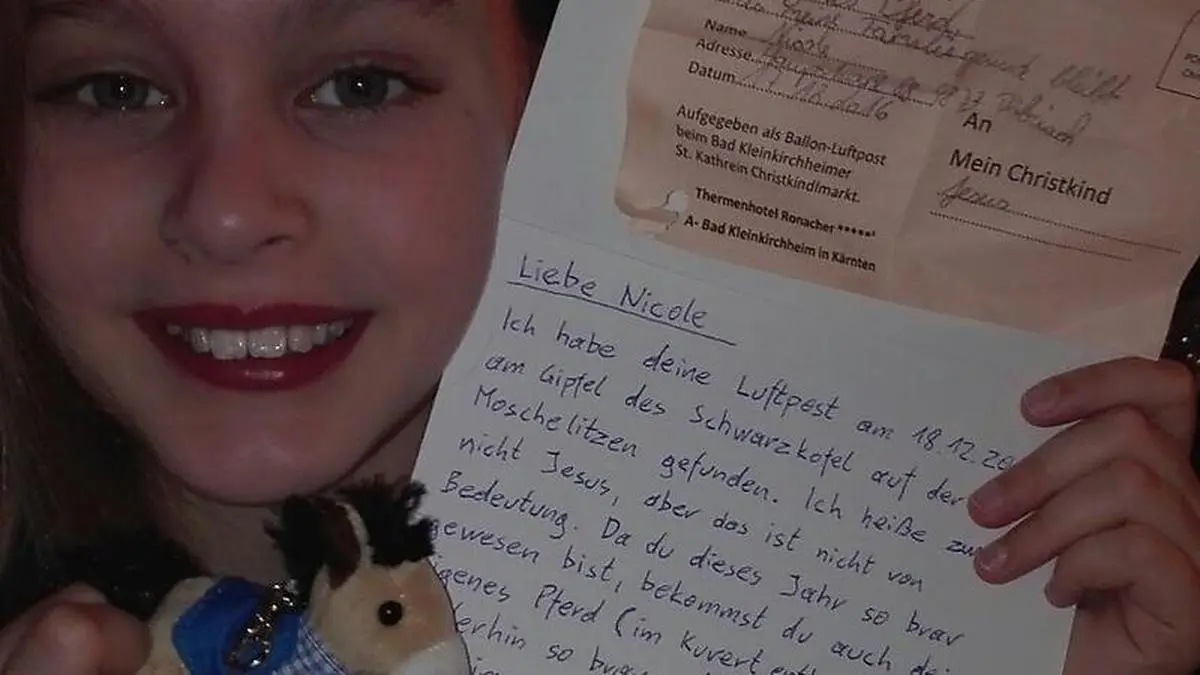 Pferd
Familie gesund bleibt
Name Nicole
Adresse
Datum 18.12.16
Aufgegeben als Ballon-Luftpost
beim Bad Kleinkirchheimer
St. Kathrein Christkindlmarkt.
Thermenhotel Ronacher *****s
A- Bad Kleinkirchheim in Kärnten
An
Mein Christkind
Jesus
Liebe Nicole
Ich habe deine Luftpost am 18.12.20
am Gipfel des Schwarzkofel auf der
Moschelitzen gefunden. Ich heiße zwar
nicht Jesus, aber das ist nicht von
Bedeutung. Da du dieses Jahr so brav
gewesen bist, bekommst du auch dei
igenes Pferd (im Kuvert
erhin so brav